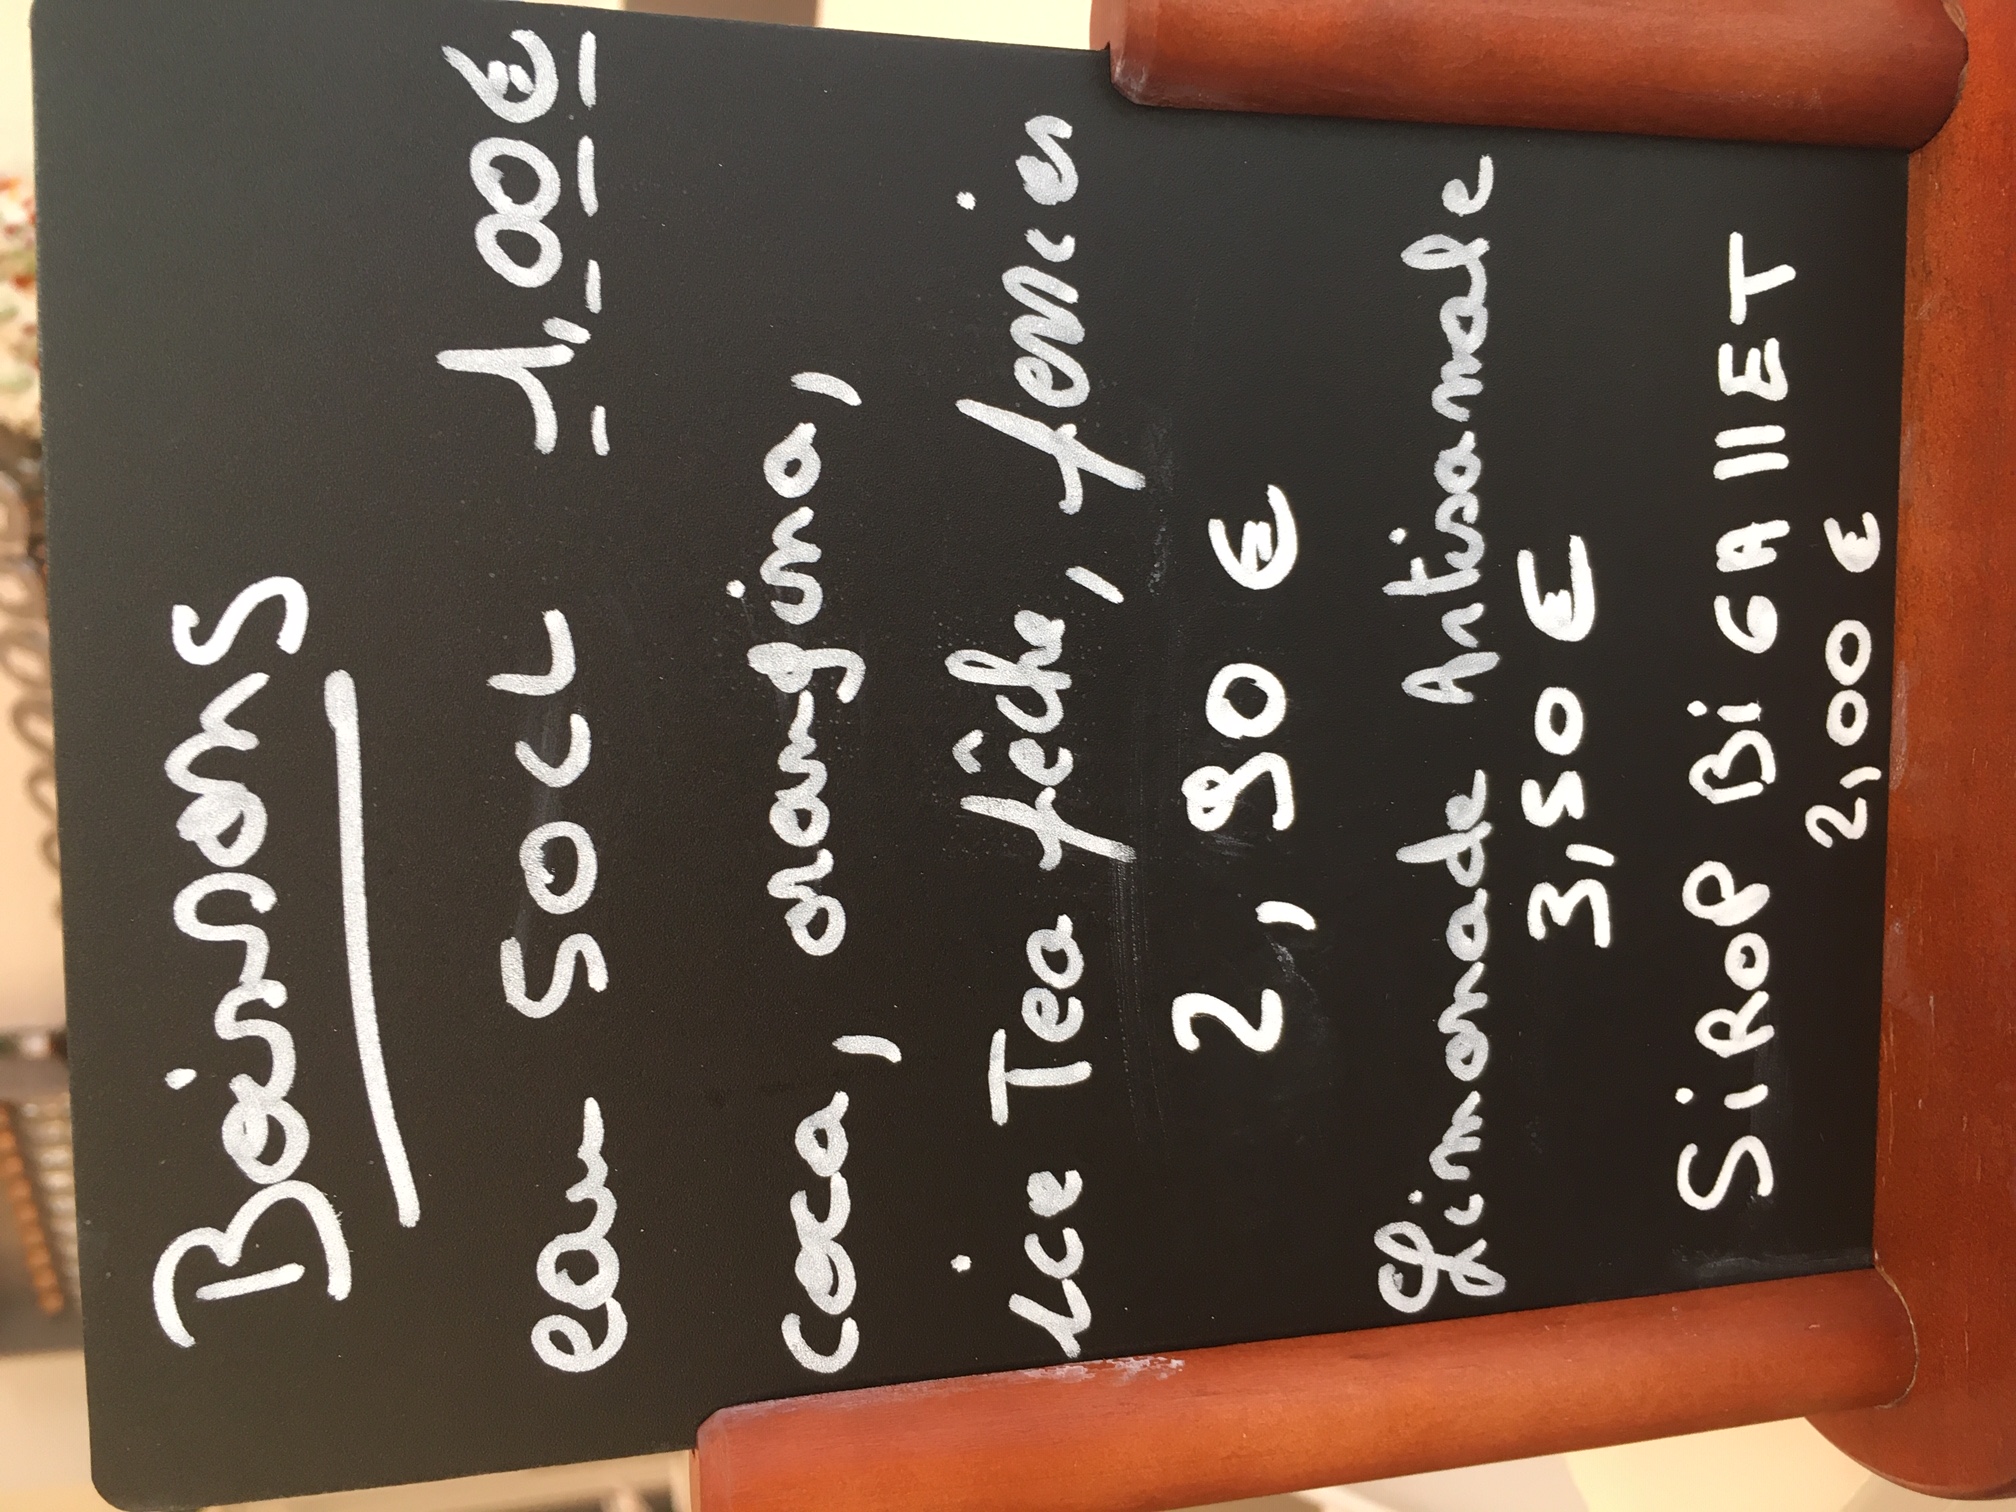 Boissons
eau 50CL 1,00€
coca, orangina,
ice Tea pêche, perrier
2,90 €
Limonade Artisanale
3,50 €
SiROP BiGAllET
2,00 €